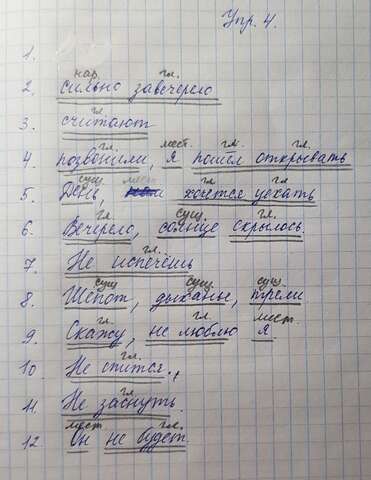 Упр. 4.
1.
нар. гл.
2. сильно завечерело
гл.
3. считают
гл. мест. гл. гл.
4. позвонили, я пошел открывать
сущ. мест. гл. гл.
5. День, хочется уехать
гл. сущ. гл.
6. Вечерело, солнце скрылось.
гл.
7. Не испечёшь
сущ сущ. сущ
8. Шёпот, дыханье, трели
гл. гл. мест.
9. Скажу, не люблю я
гл.
10. Не спится.,
гл.
11. Не заснуть.
мест гл.
12. Он не будет